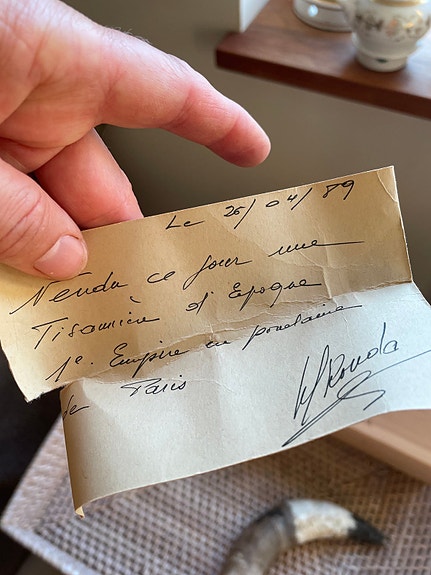 Le 26/04/89
Vendu ce jour une
Tisanière d'Epoque
1e. Empire en porcelaine
de Paris